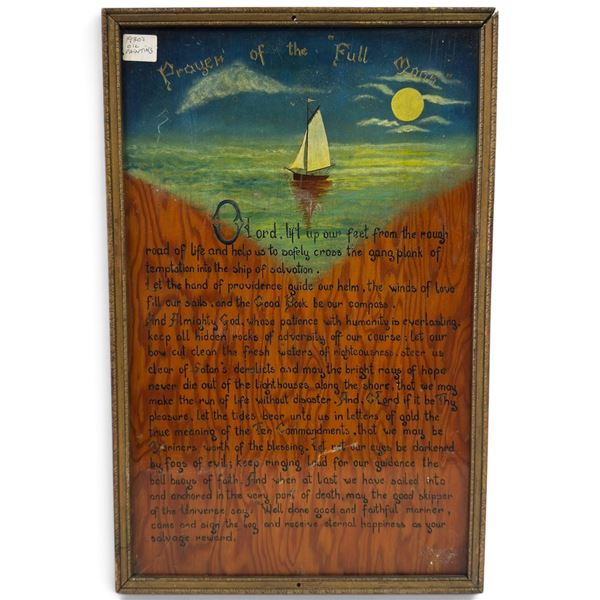 1930s
OIL
PAINTING
Prayer of the "Full Moon"
O Lord, lift up our feet from the rough
road of life and help us to safely cross the gang plank of
temptation into the ship of salvation.
Let the hand of providence guide our helm, the winds of love
fill our sails, and the Good Book be our compass.
And Almighty God, whose patience with humanity is everlasting,
keep all hidden rocks of adversity off our course; let our
bow cut clean the fresh waters of righteousness; steer us
clear of Satan's derelicts and may the bright rays of hope
never die out of the lighthouses along the shore, that we may
make the run of life without disaster. And, O Lord if it be Thy
pleasure, let the tides bear unto us in letters of gold the
true meaning of the Ten Commandments, that we may be
Mariners worth of the blessing. Let not our eyes be darkened
by fogs of evil; keep ringing loud for our guidance the
bell buoys of faith. And when at last we have sailed into
and anchored in the very port of death, may the good skipper
of the Universe say: "Well done good and faithful mariner,
come and sign the log and receive eternal happiness as your
salvage reward.